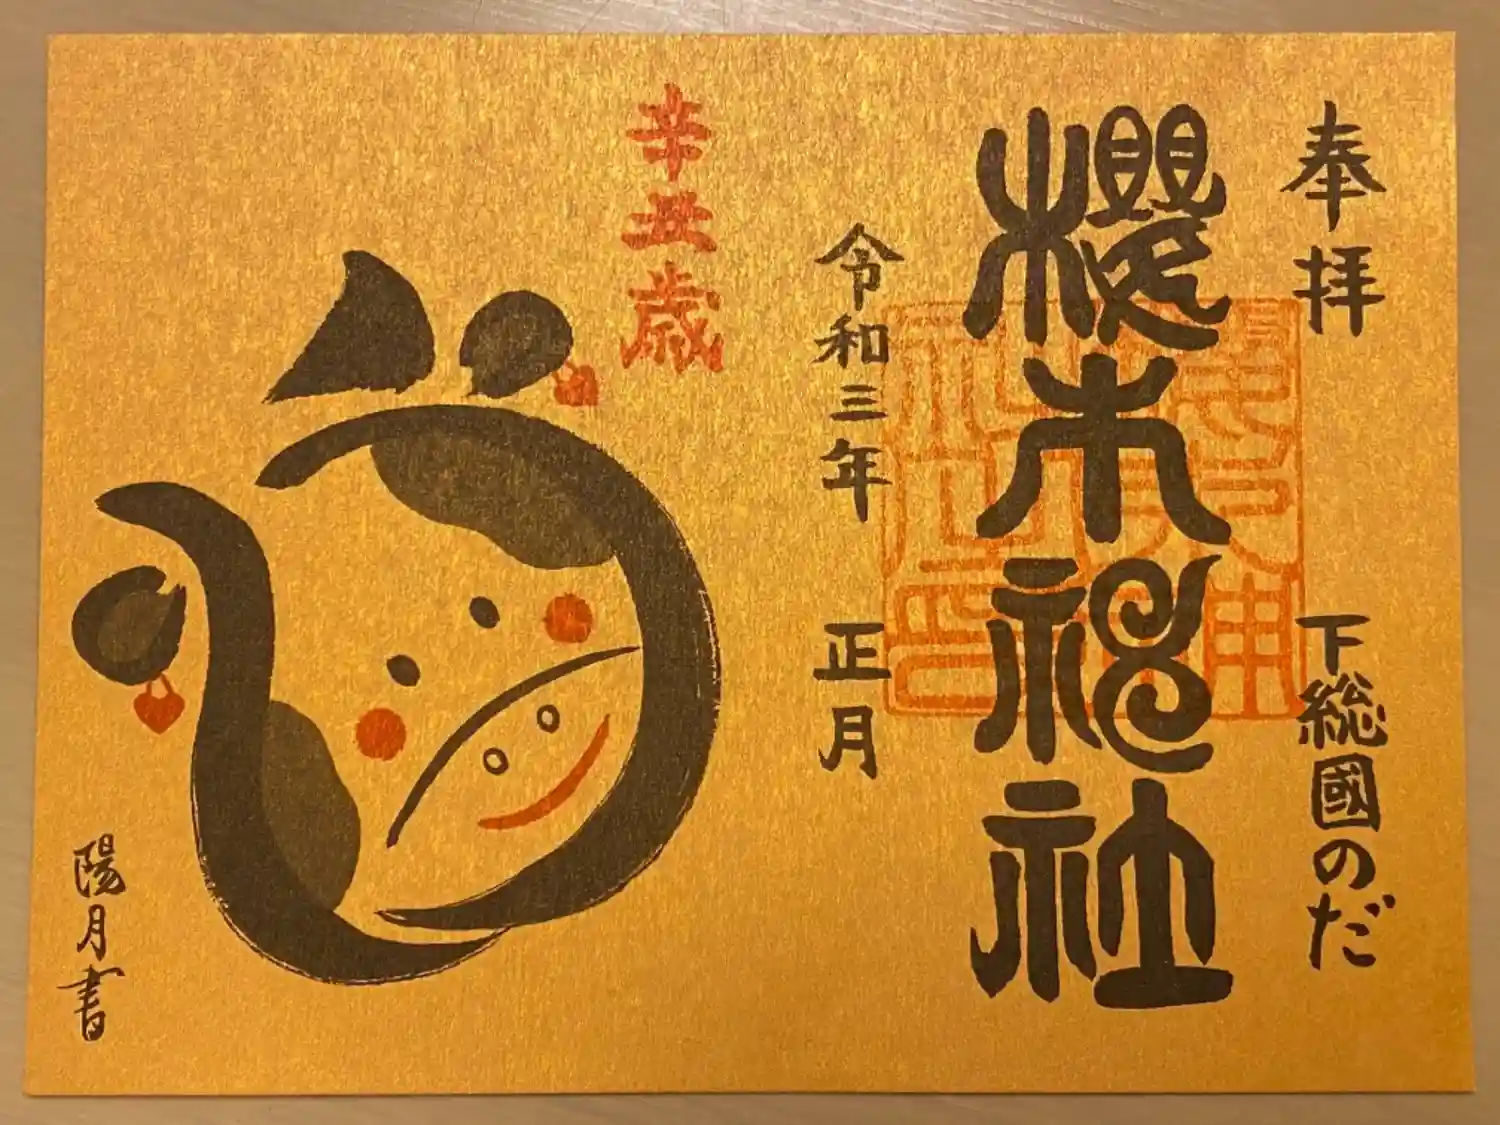 奉拝 下総國のだ
櫻木神社
令和三年 正月
辛丑歳
陽月書